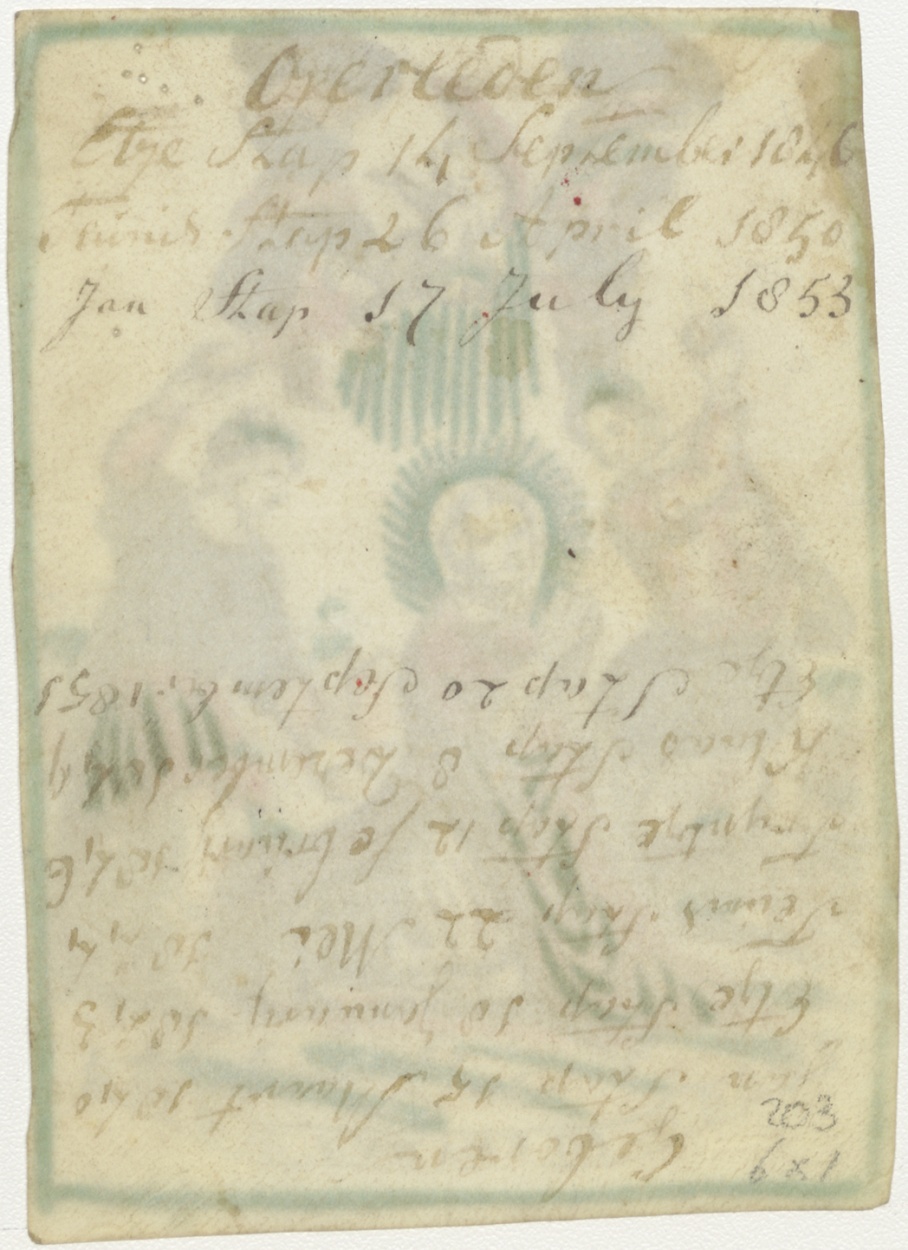 Overleden
Etje Stap 14 September 1846
Teunis Stap 26 April 1850
Jan Stap 17 July 1853
Geboren
Jan Stap 15 Maart 1840
Etje Stap 10 january 1843
Teunis Stap 22 Mei 1844
Tryntje Stap 12 februarij 1846
Klaas Stap 8 December 1849
Etje Stap 20 September 1851
203
6 x 1